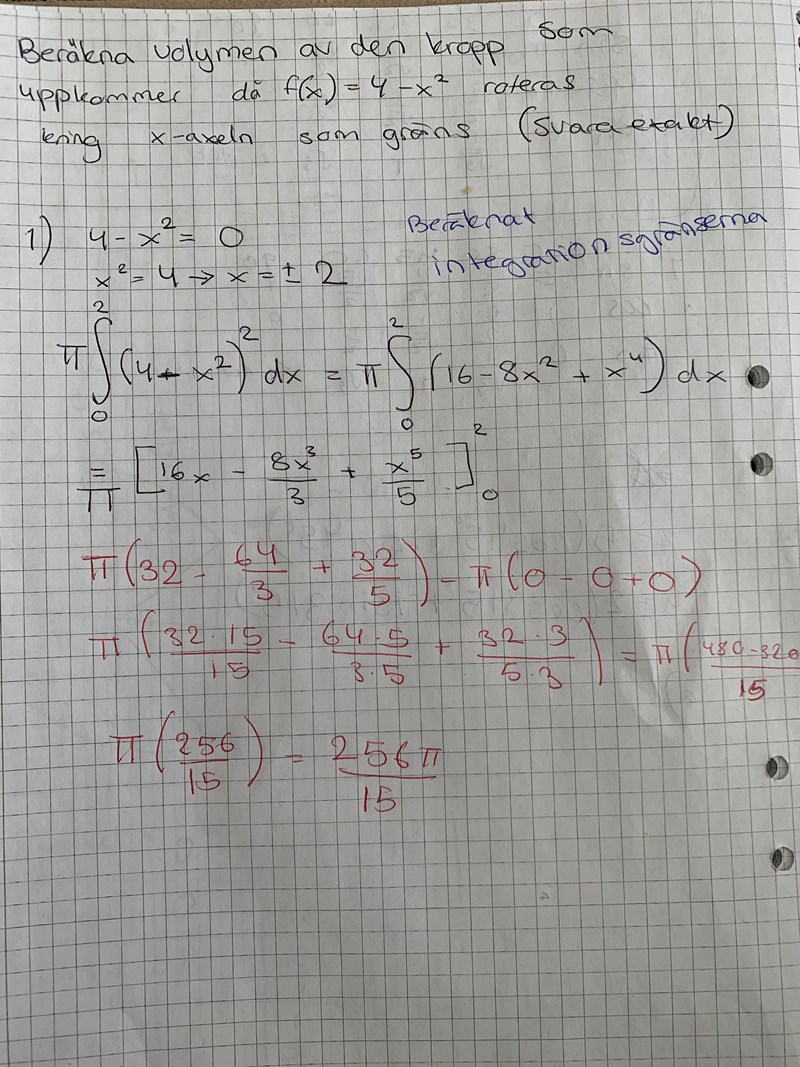 Beräkna volymen av den kropp som
uppkommer då f(x) = 4 - x² roteras
kring x-axeln som gräns (svara exakt)
1) 4 - x² = 0
Beräknat
integrationsgränserna
x² = 4 → x = ± 2
π ∫₀² (4 - x²)² dx = π ∫₀² (16 - 8x² + x⁴) dx
= π [16x - 8x³/3 + x⁵/5]₀²
π(32 - 64/3 + 32/5) - π(0 - 0 + 0)
π(32·15/15 - 64·5/3·5 + 32·3/5·3) = π(480-320/15
π(256/15) = 256π/15